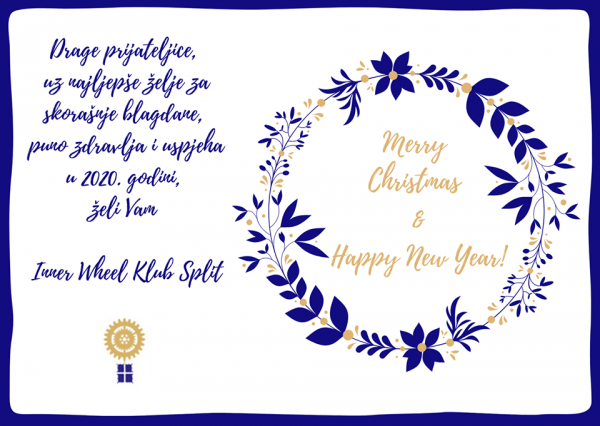 Drage prijateljice,
uz najljepše želje za
skorašnje blagdane,
puno zdravlja i uspjeha
u 2020. godini,
želi Vam
Inner Wheel Klub Split
Merry
Christmas
&
Happy New Year!